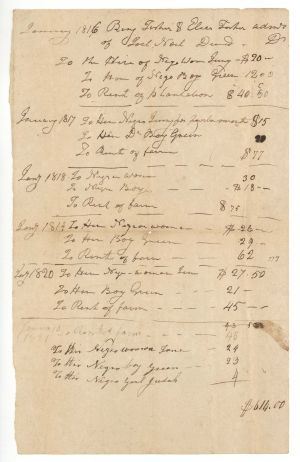 January 1816 Benj Fisher & Elias Fisher admrs
of Joel Neel Decd Dr
To the Hire of Negro Woman $20
To Hire of Negro Boy Green 12 00
To Rent of Plantation $ 40.50
January 1817 To Hire Negro $15
To Hire Do Boy Green 20
To Rent of farm $77
Jany 1818 To Negro woman 30
To Negro Boy $18
To Rent of farm $75
Jany 1819 To Hire Negro woman $26
To Hire Boy Green 29
To Rent of farm 62
Jay 1820 To Hire Negro woman $27.50
To Hire Boy Green 21
To Rent of farm 45
To Hire Negro woman Jane 24
To Hire Negro boy Green 23
To Hire Negro Girl Judah 4
$614.00